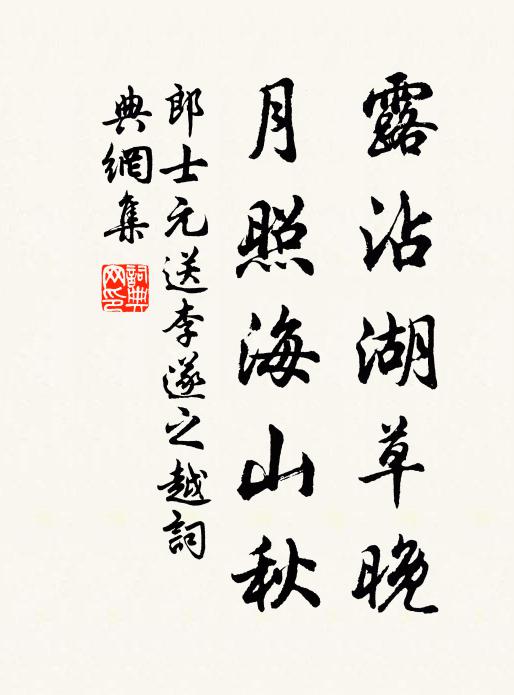 露沾湖草晚
月照海山秋
郎士元送李遂之越詞
典網集
詞典網印